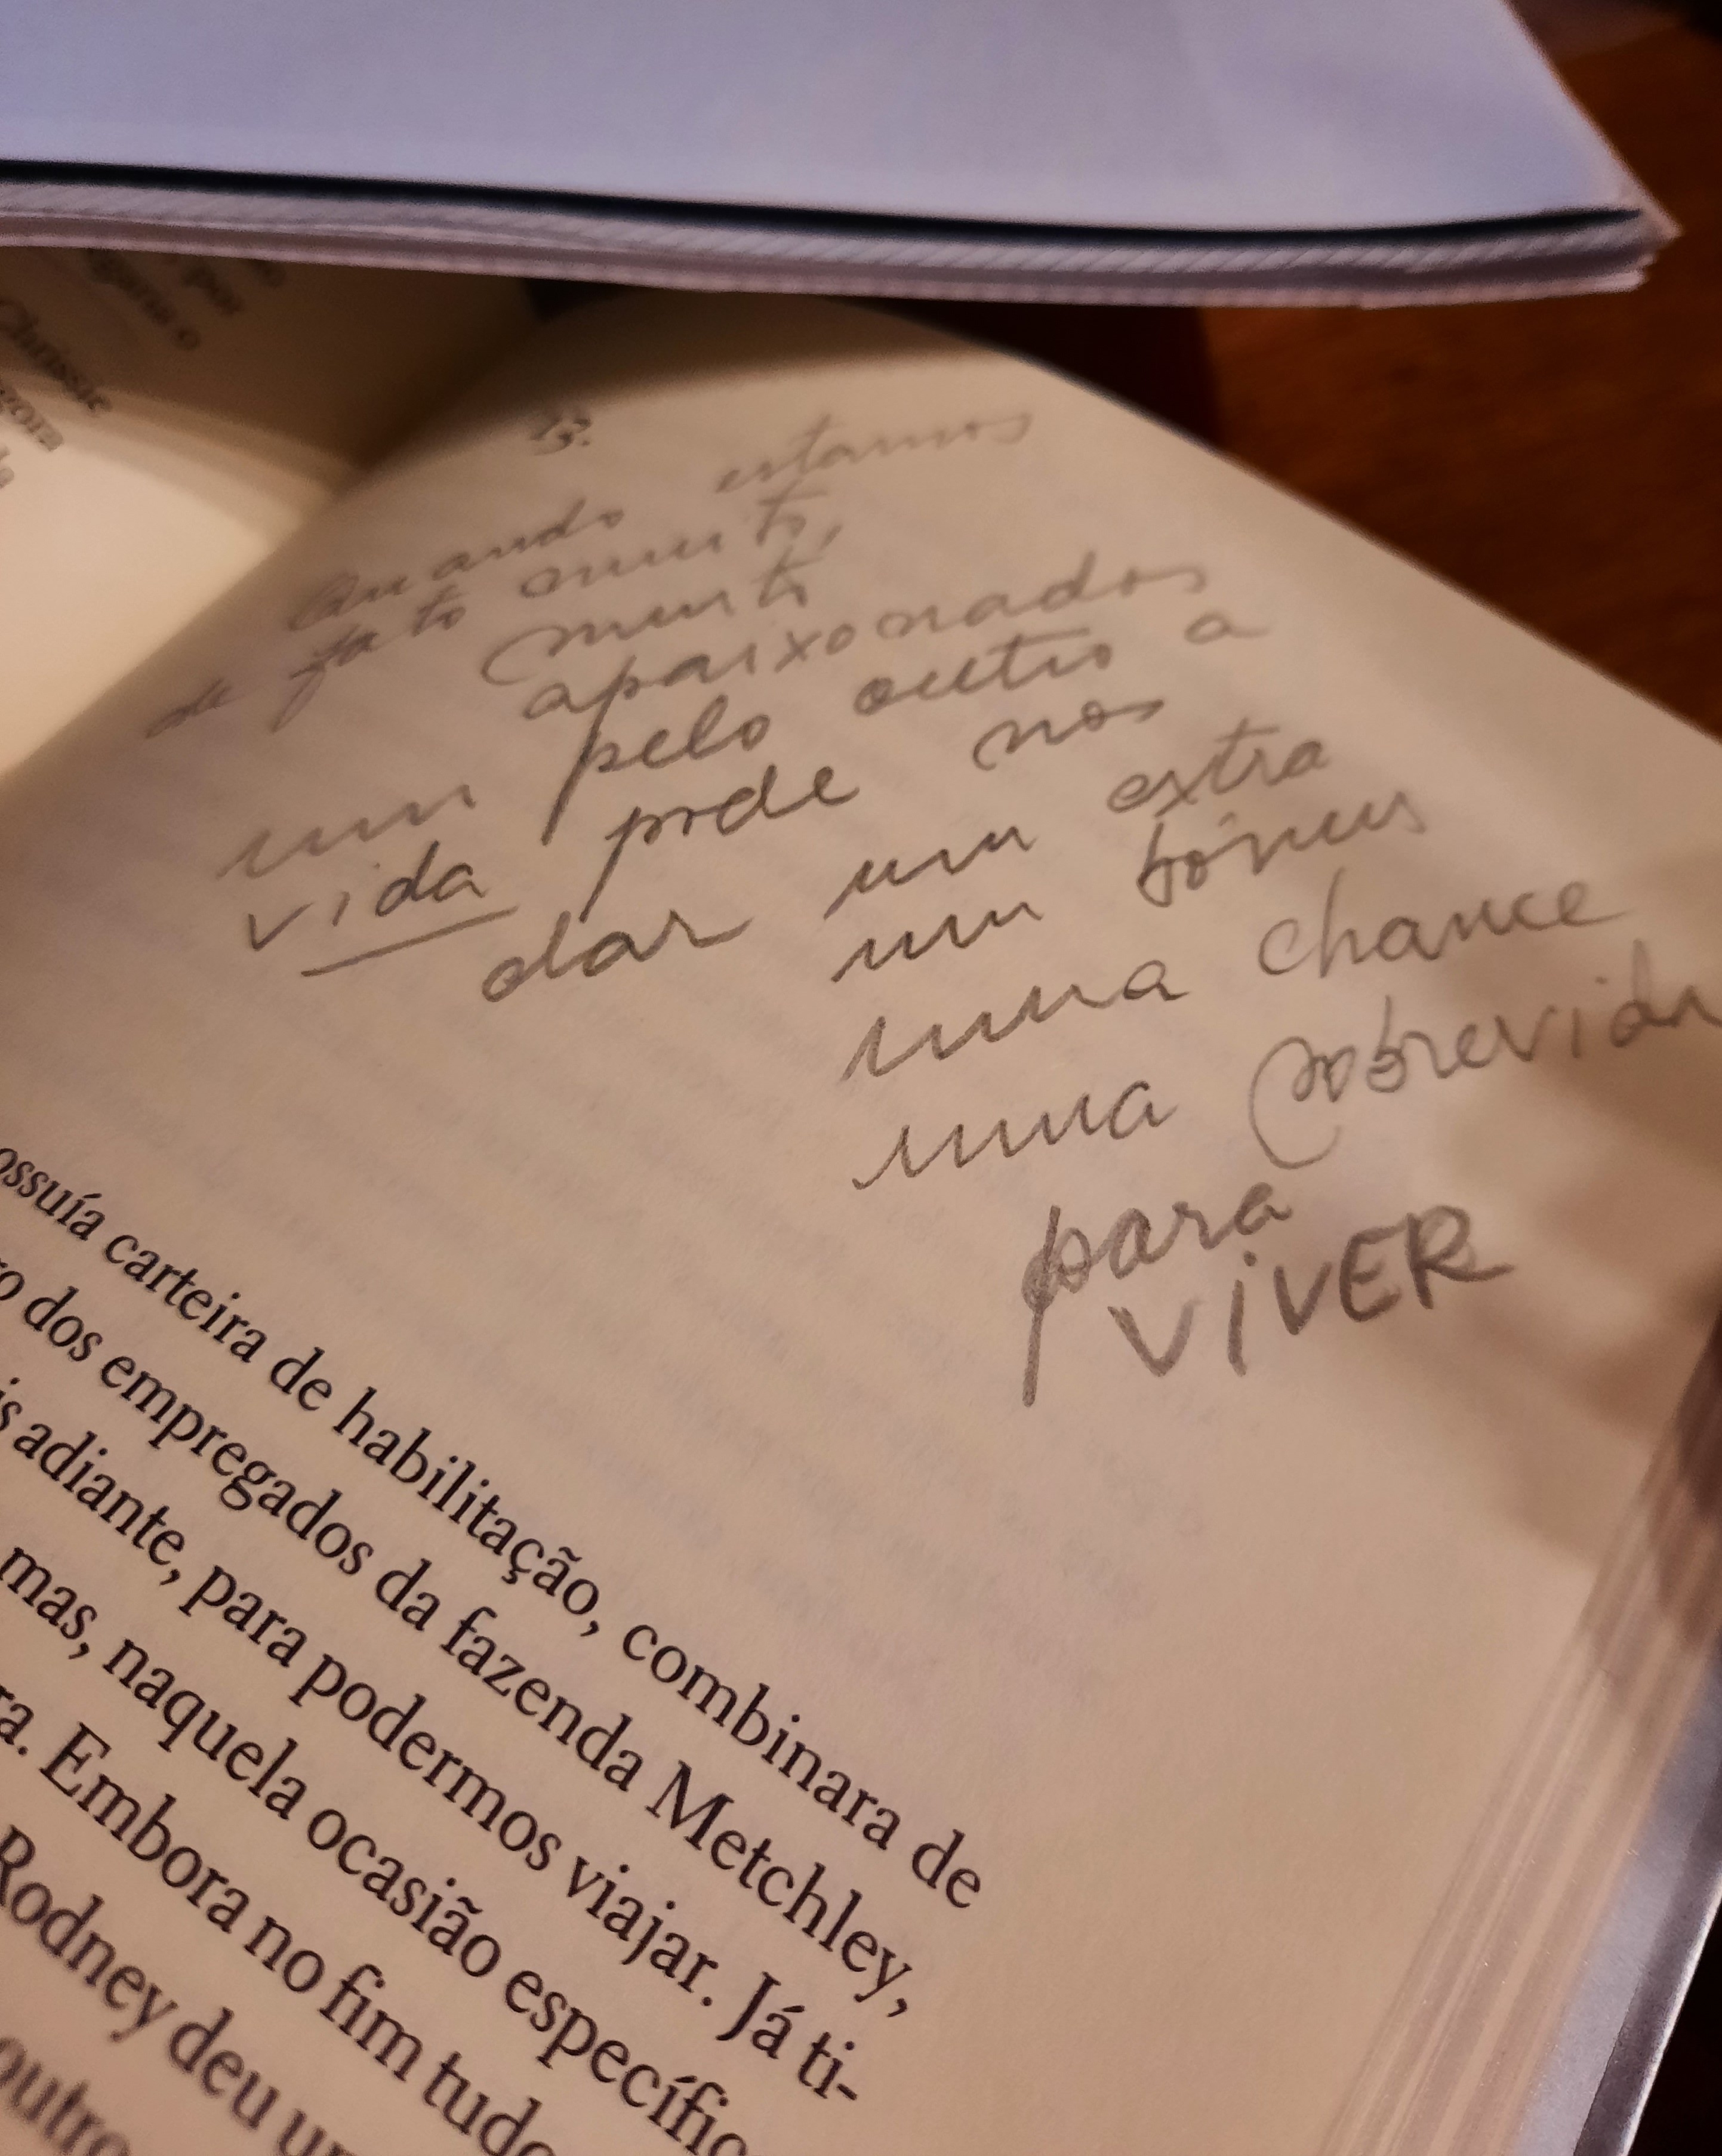 por
Chrissie
13.
Quando estamos
de fato muito,
muito
apaixonados
um pelo outro a
vida pode nos
dar um extra
um bônus
uma chance
uma sobrevida
para
VIVER
ossuía carteira de habilitação, combinara de
o dos empregados da fazenda Metchley,
is adiante, para podermos viajar. Já ti-
mas, naquela ocasião específic
ra. Embora no fim tudo
Rodney deu u
outro